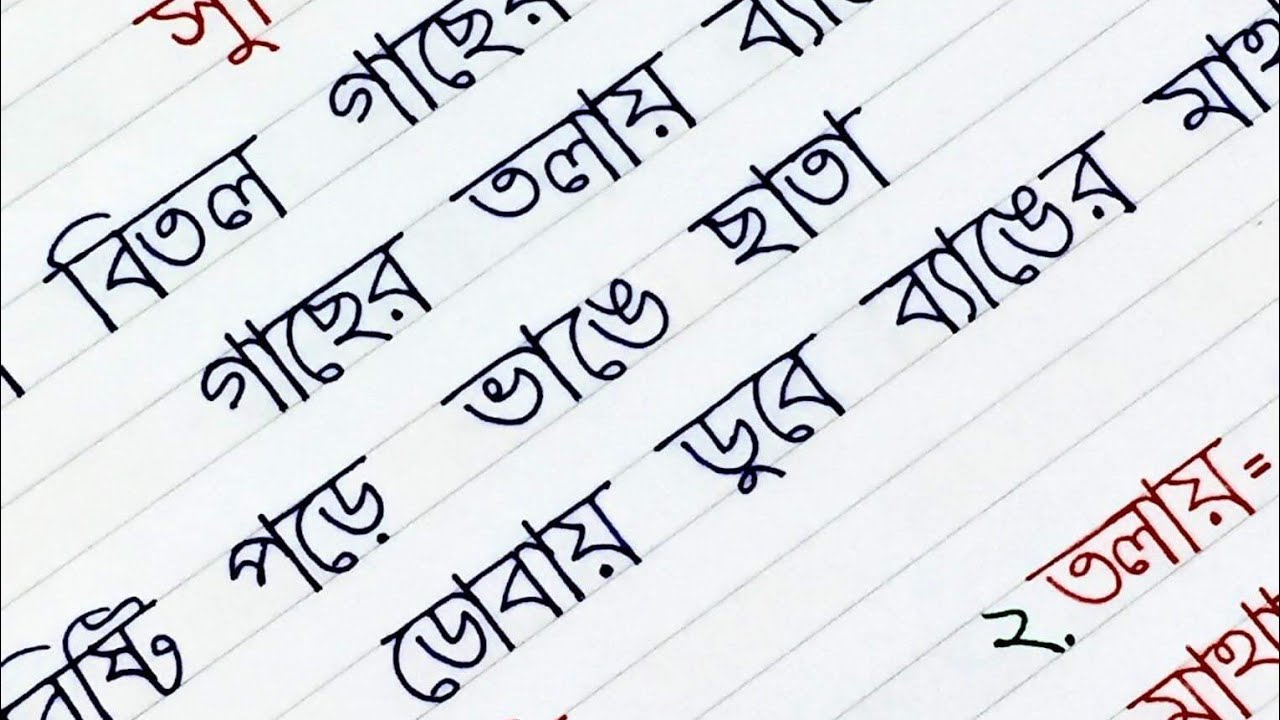 সু
বিতল গাছের
গাছের তলায় ব্যা
বৃষ্টি পড়ে ভাঙে ছাতা
ডোবায় ডুবে ব্যাঙের মাথ
২. তলায়=
মাথা